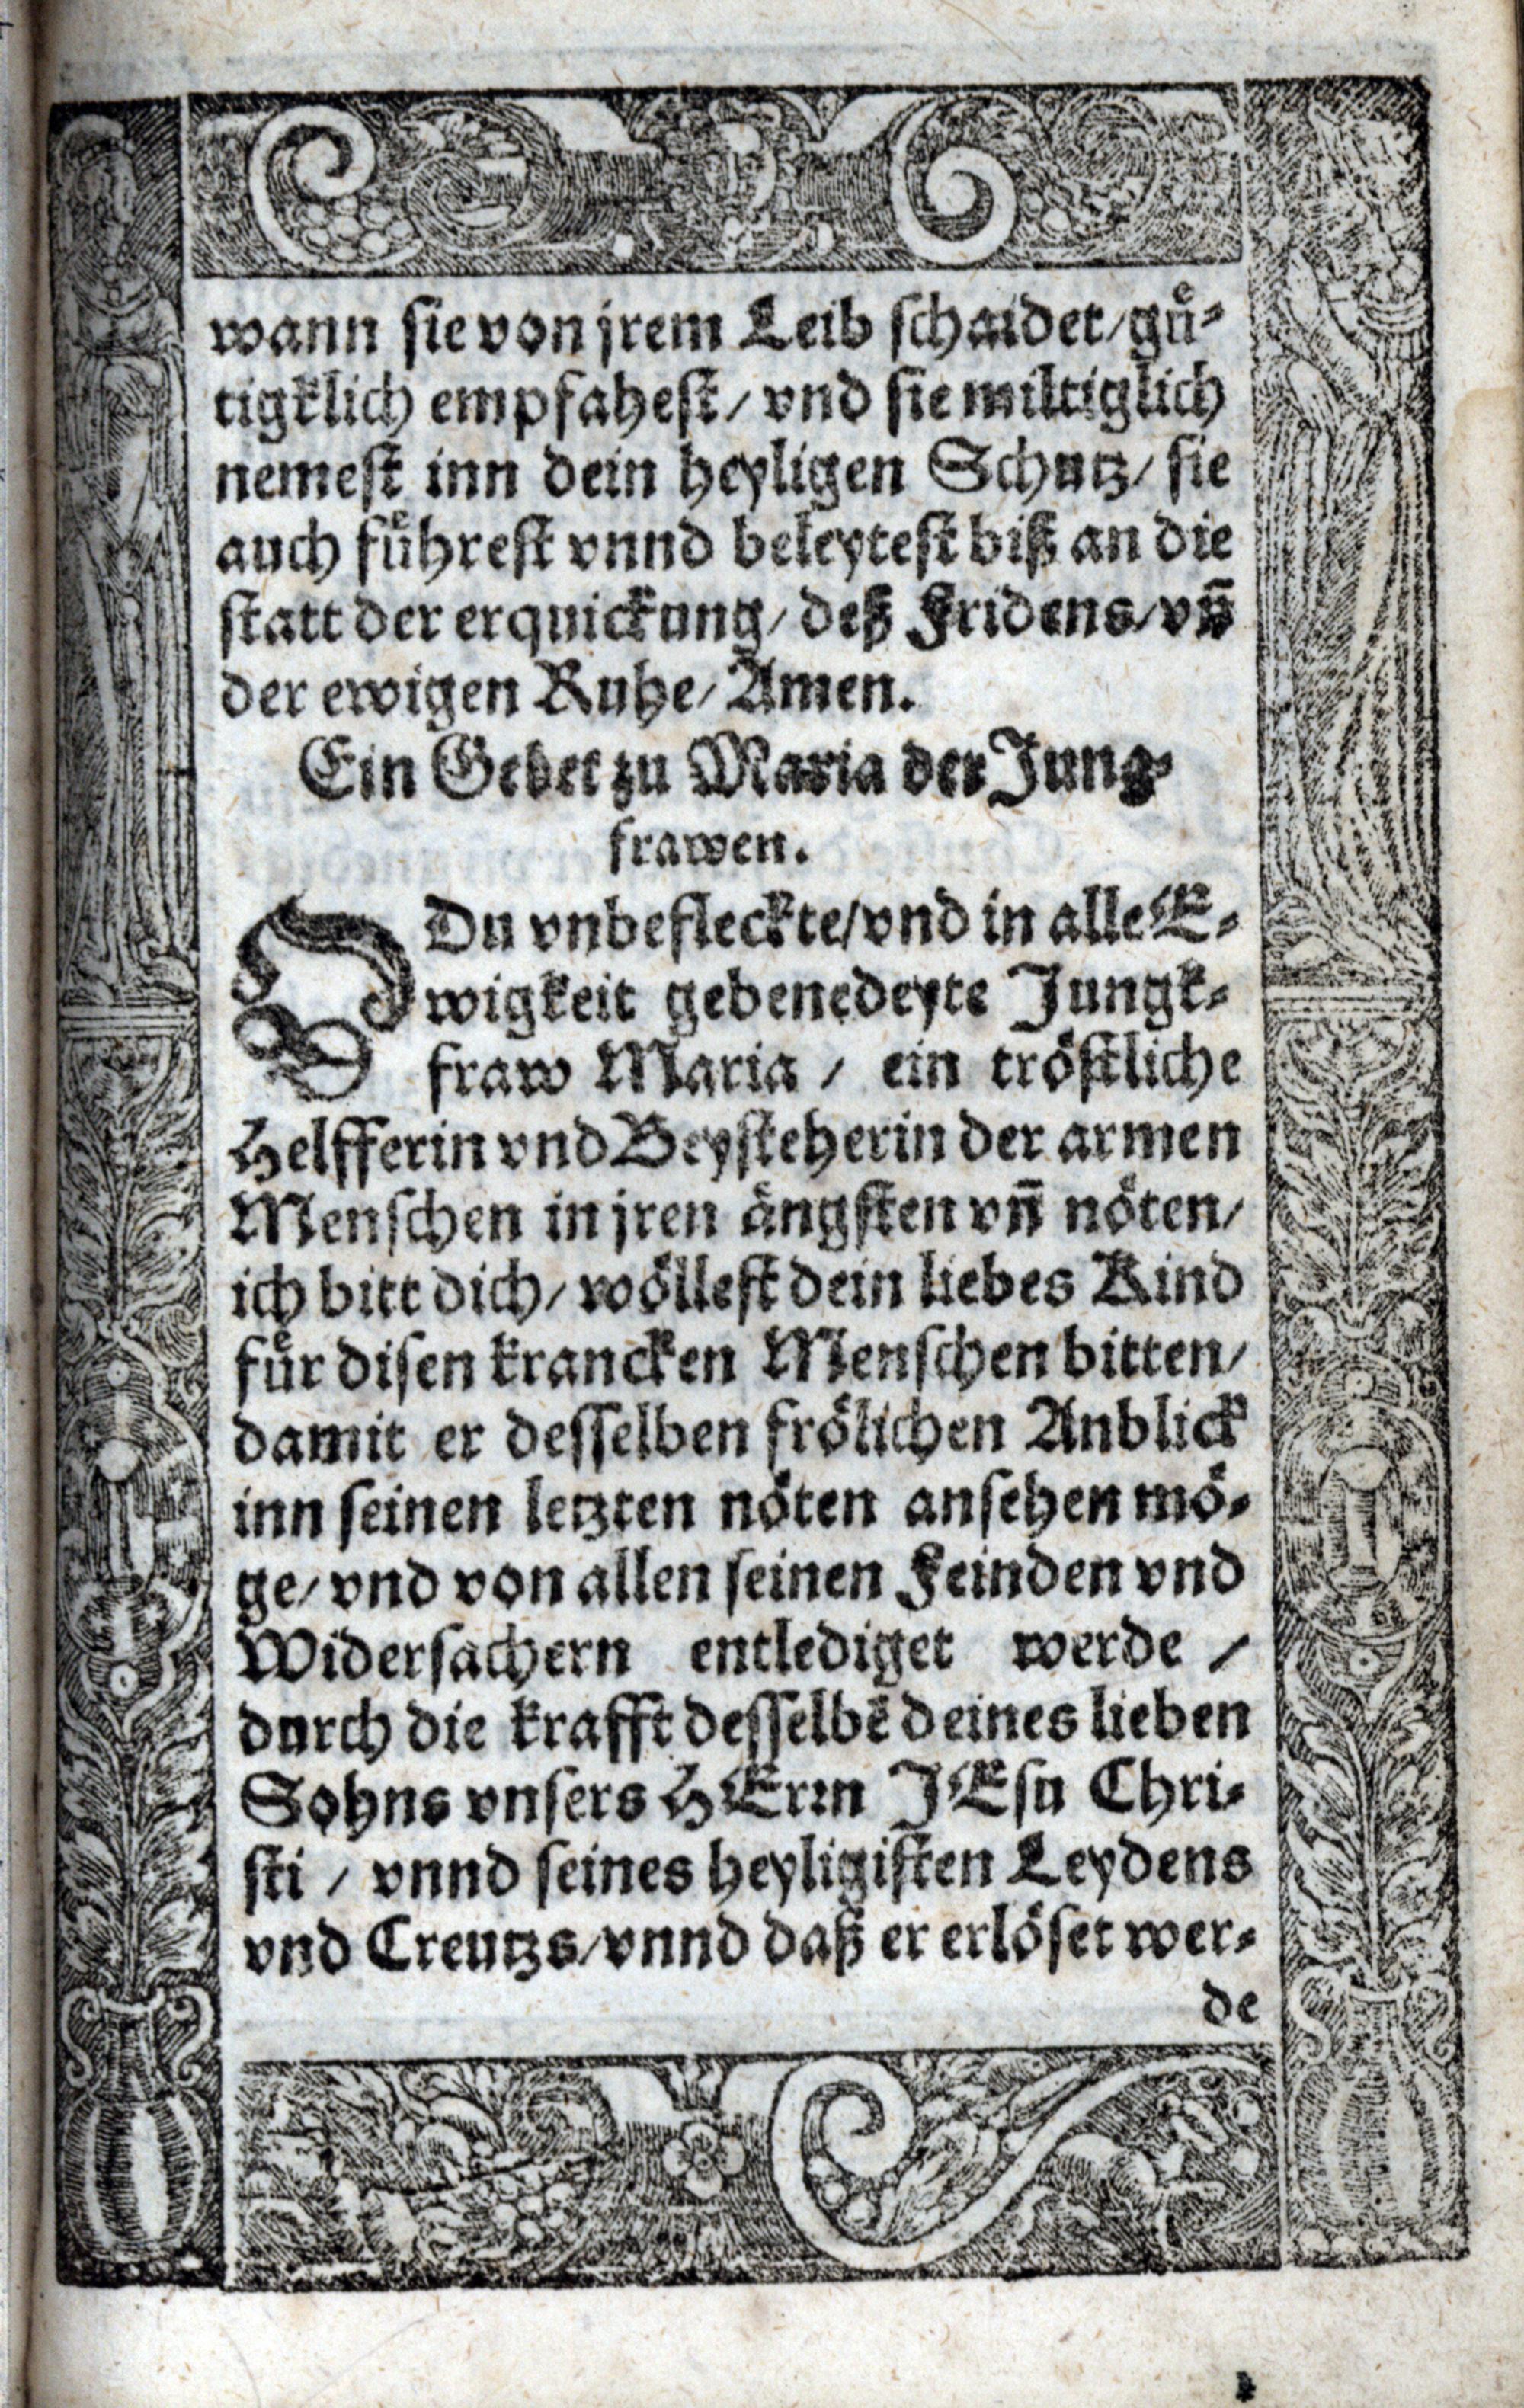 wann sie von jrem Leib schaidet/ guͤ-
tigklich empfahest/ vnd sie miltiglich
nemest inn dein heyligen Schutz/ sie
auch fuͤhrest vnnd beleytest biß an die
statt der erquickung/ deß Fridens/ vñ
der ewigen Ruhe/ Amen.
Ein Gebet zu Maria der Jung-
frawen.
O Du vnbefleckte/ vnd in alle E-
wigkeit gebenedeyte Jungk-
fraw Maria / ein troͤstliche
Helfferin vnd Beysteherin der armen
Menschen in jren aͤngsten vñ noͤten/
ich bitt dich/ woͤllest dein liebes Kind
fuͤr disen krancken Menschen bitten/
damit er desselben froͤlichen Anblick
inn seinen letzten noͤten ansehen moͤ-
ge/ vnd von allen seinen Feinden vnd
Widersachern entlediget werde /
durch die krafft desselbẽ deines lieben
Sohns vnsers HErꝛn JEsu Chri-
sti / vnnd seines heyligisten Leydens
vnd Creutzs/ vnnd daß er erloͤset wer-
de